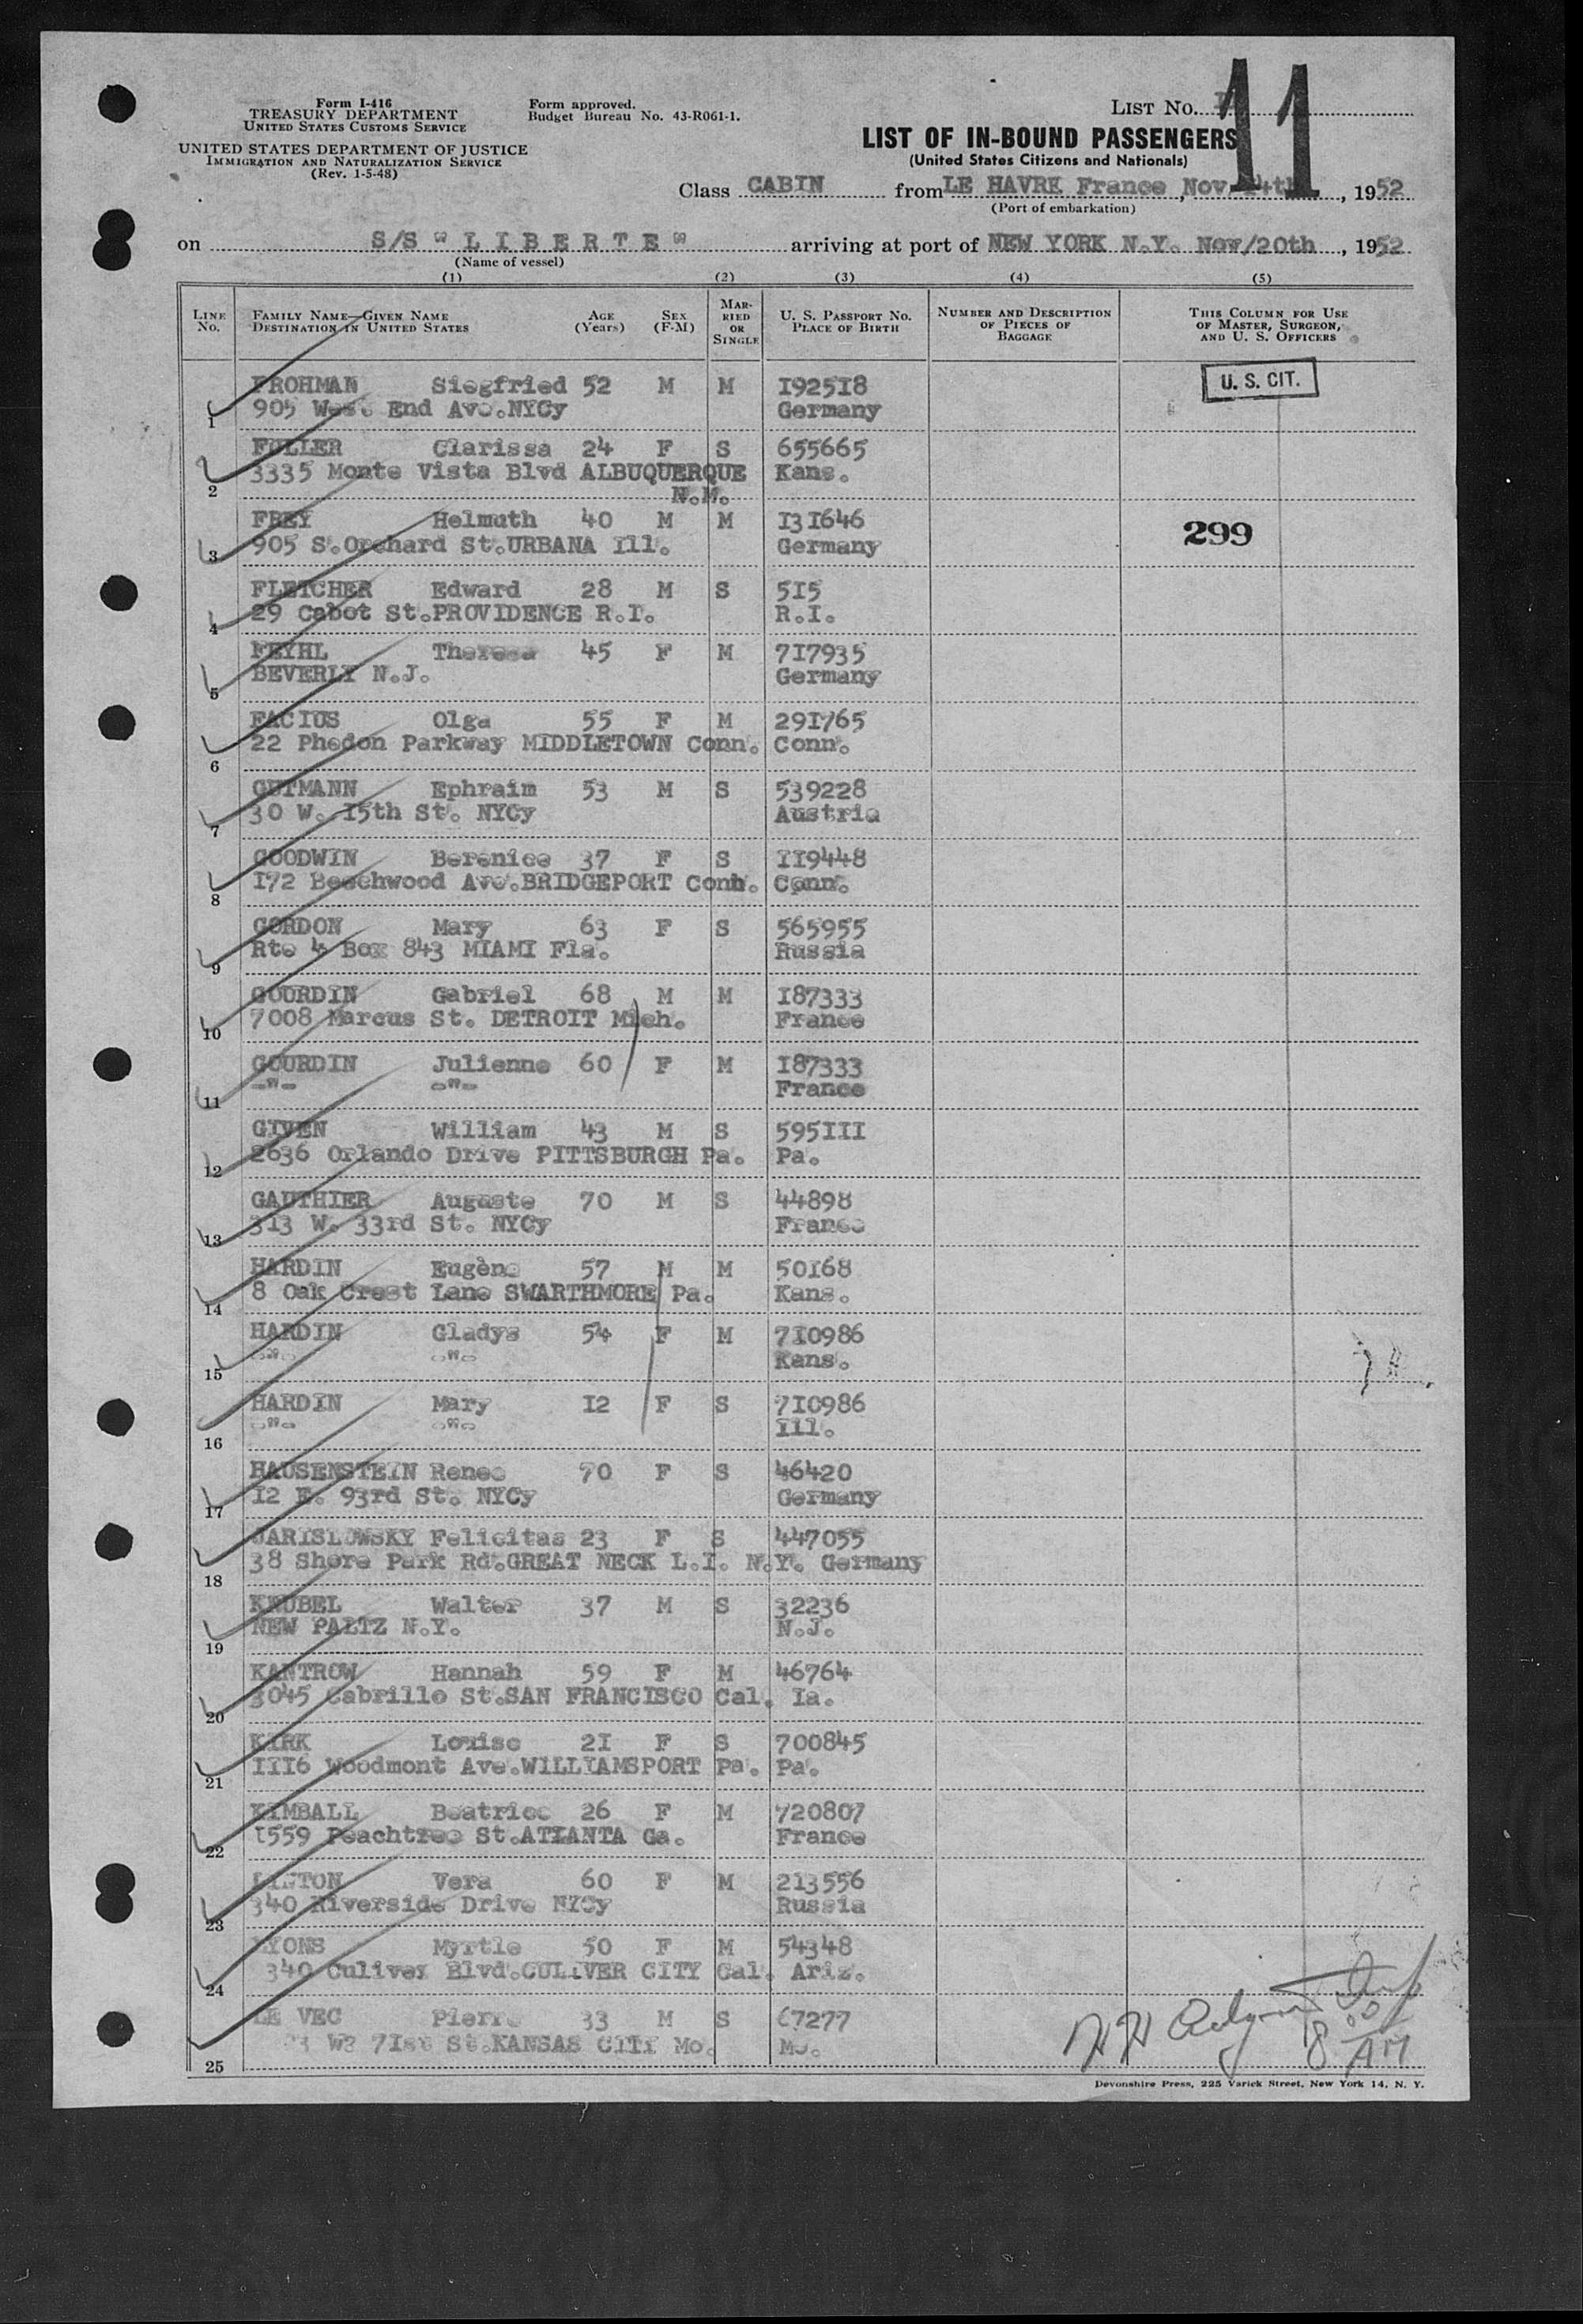 Form I-416
TREASURY DEPARTMENT
UNITED STATES CUSTOMS SERVICE
UNITED STATES DEPARTMENT OF JUSTICE
IMMIGRATION AND NATURALIZATION SERVICE
(Rev. 1-5-48)
Form approved.
Budget Bureau No. 43-R061-1.
LIST NO. 11
LIST OF IN-BOUND PASSENGERS
(United States Citizens and Nationals)
Class CABIN from LE HAVRE France, Nov. 14th, 1952
(Port of embarkation)
on S/S "LIBERTE" arriving at port of NEW YORK N.Y. Nov/20th, 1952
(Name of vessel)
(1) (2) (3) (4) (5)
LINE No. FAMILY NAME—GIVEN NAME DESTINATION IN UNITED STATES AGE (Years) SEX (F-M) MARRIED OR SINGLE U. S. PASSPORT NO. PLACE OF BIRTH NUMBER AND DESCRIPTION OF PIECES OF BAGGAGE THIS COLUMN FOR USE OF MASTER, SURGEON, AND U. S. OFFICERS
U. S. CIT.
FROHMAN Siegfried 52 M M I925I8
1 905 West End Ave.NYCy Germany
FULLER Clarissa 24 F S 655665
3335 Monte Vista Blvd ALBUQUERQUE Kans.
2 N.M.
FREY Helmuth 40 M M I3I646
3 905 S.Orchard St.URBANA Ill. Germany
299
FLETCHER Edward 28 M S 5I5
4 29 Cabot St.PROVIDENCE R.I. R.I.
FEYHL Theresa 45 F M 7I7935
5 BEVERLY N.J. Germany
FACIUS Olga 55 F M 29I765
6 22 Phedon Parkway MIDDLETOWN Conn. Conn.
GUTMANN Ephraim 53 M S 539228
7 30 W. I5th St. NYCy Austria
GOODWIN Berenice 37 F S II9448
8 I72 Beechwood Ave.BRIDGEPORT Conn. Conn.
GORDON Mary 63 F S 565955
9 Rte 4 Box 843 MIAMI Fla. Russia
GOURDIN Gabriel 68 M M I87333
10 7008 Marcus St. DETROIT Mich. France
GOURDIN Julienne 60 F M I87333
11 -"- -"- France
GIVEN William 43 M S 595III
12 2636 Orlando Drive PITTSBURGH Pa. Pa.
GAUTHIER Auguste 70 M S 44898
13 3I3 W. 33rd St. NYCy France
HARDIN Eugène 57 M M 50I68
14 8 Oak Crest Lane SWARTHMORE Pa. Kans.
HARDIN Gladys 54 F M 7I0986
15 -"- -"- Kans.
HARDIN Mary I2 F S 7I0986
16 -"- -"- Ill.
HAUSENSTEIN Renee 70 F S 46420
17 I2 E. 93rd St. NYCy Germany
JARISLOWSKY Felicitas 23 F S 447055
18 38 Shore Park Rd.GREAT NECK L.I. N.Y. Germany
KNUBEL Walter 37 M S 32236
19 NEW PALTZ N.Y. N.J.
KANTROW Hannah 59 F M 46764
20 3045 Cabrillo St.SAN FRANCISCO Cal. Ia.
KIRK Louise 2I F S 700845
21 III6 Woodmont Ave.WILLIAMSPORT Pa. Pa.
KIMBALL Beatrice 26 F M 720807
22 I559 Peachtree St.ATLANTA Ga. France
Vera 60 F M 2I3556
23 340 Riverside Drive NYCy Russia
LYONS Myrtle 50 F M 54348
24 340 Culiver Blvd.CULIVER CITY Cal. Ariz.
LE VEC Pierre 33 M S 67277
25 7Ist St.KANSAS CITY Mo. Mo.
8:00 AM
Devonshire Press, 225 Varick Street, New York 14, N. Y.